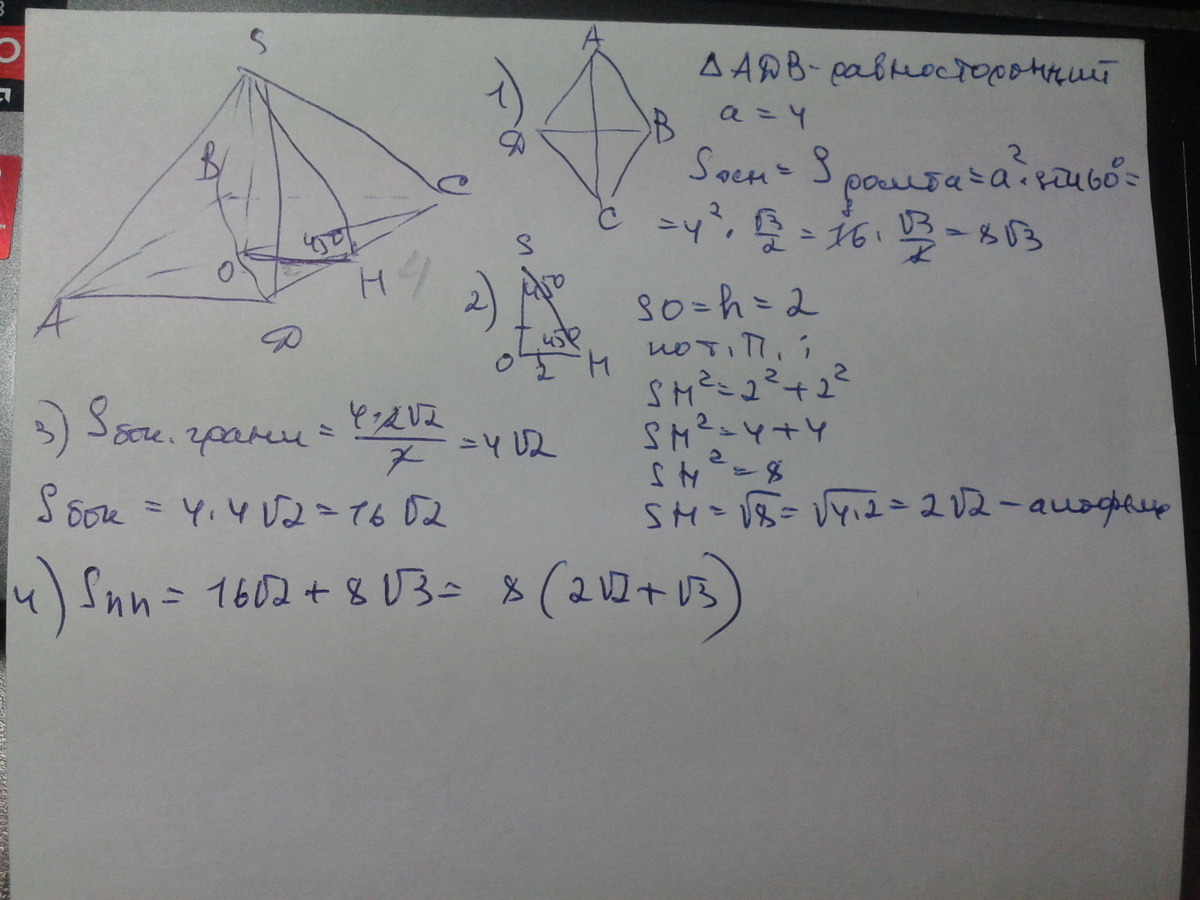 S
B
C
45°
O
H
4
A
D
1)
A
D
B
C
ΔADB - равносторонний
a = 4
Sосн = Sромба = a² · sin60° =
= 4² · √3/2 = 16 · √3/2 = 8√3
2)
S
45°
45°
O
2
H
SO = h = 2
по т. П. :
SH² = 2² + 2²
SH² = 4 + 4
SH² = 8
SH = √8 = √4·2 = 2√2 - апофема
3) Sбок. грани = 4·2√2/2 = 4√2
Sбок = 4·4√2 = 16√2
4) Sпп = 16√2 + 8√3 = 8(2√2 + √3)